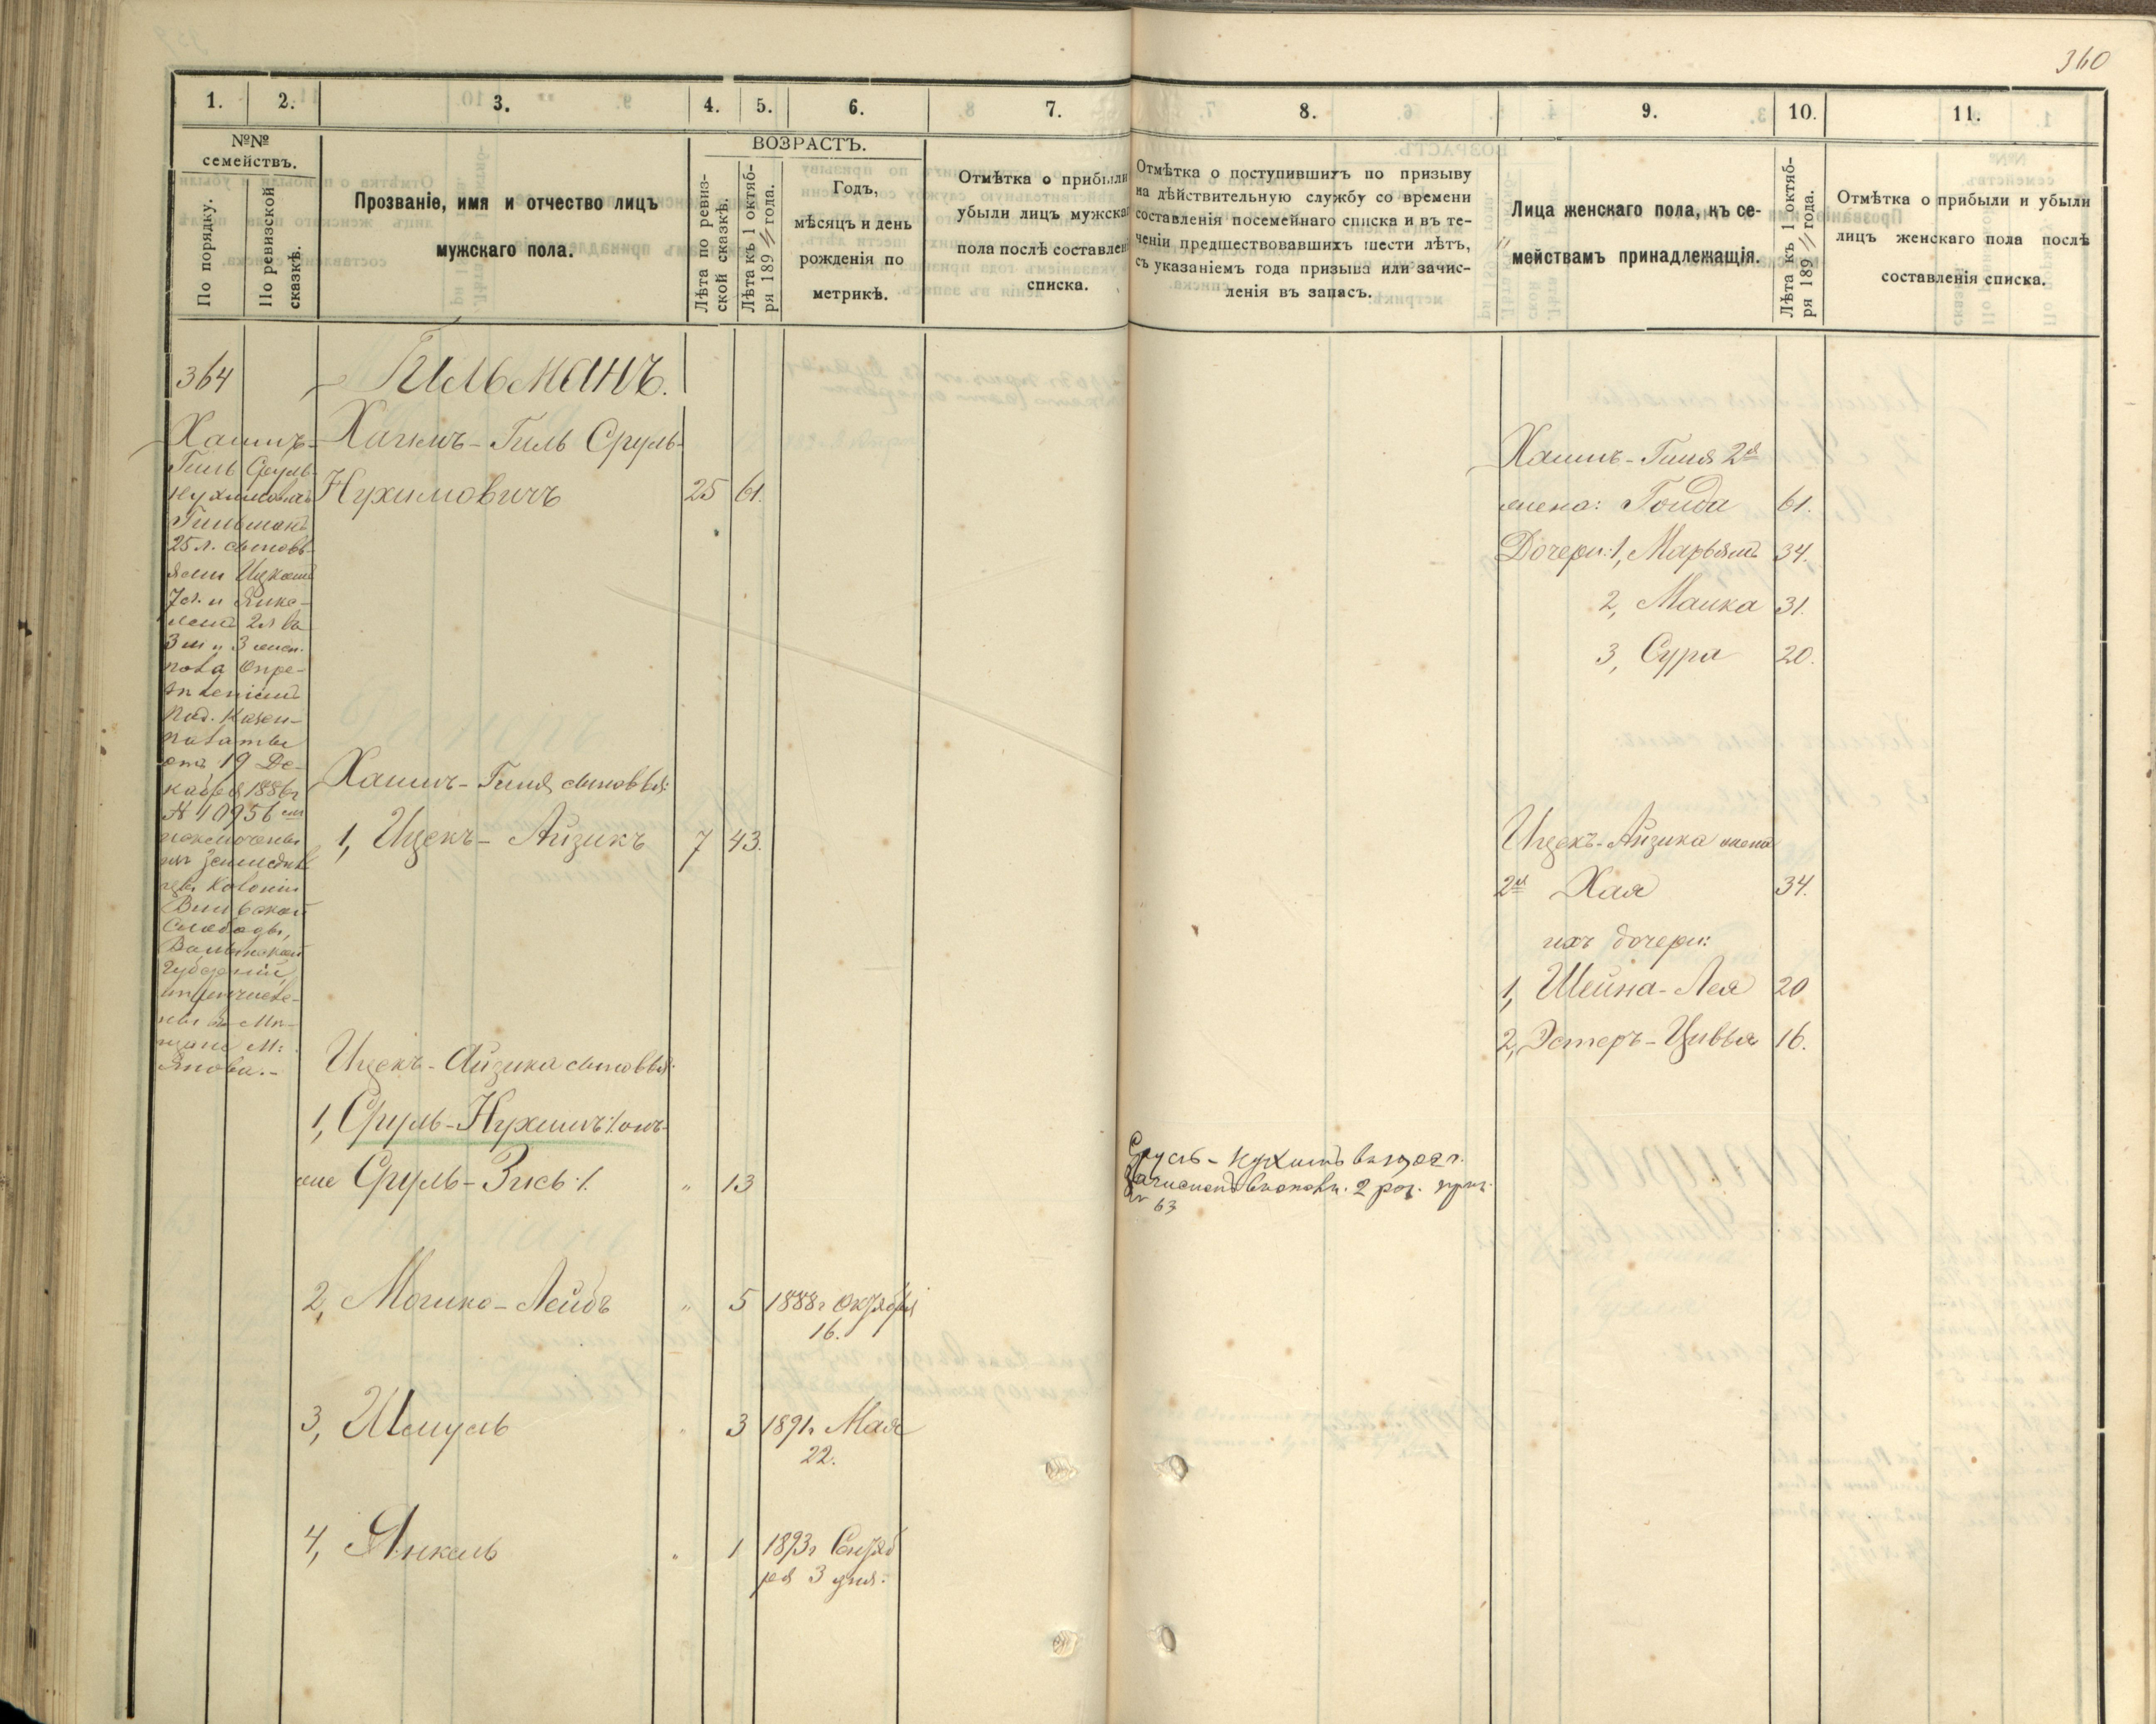 360
1. 2. 3. 4. 5. 6. 7. 8. 9. 10. 11.
№№ семействъ.
По порядку.
По ревизской сказкѣ.
Прозваніе, имя и отчество лицъ
мужскаго пола.
ВОЗРАСТЪ.
Лѣта по ревиз-
ской сказкѣ.
Лѣта къ 1 октяб-
ря 189 года.
Годъ,
мѣсяцъ и день
рожденія по
метрикѣ.
Отмѣтка о прибыли
убыли лицъ мужска
пола послѣ составлен
списка.
Отмѣтка о поступившихъ по призыву
на дѣйствительную службу со времени
составленія посемейнаго списка и въ те-
ченіи предшествовавшихъ шести лѣтъ,
съ указаніемъ года призыва или зачис-
ленія въ запасъ.
Лица женскаго пола, къ се-
мействамъ принадлежащія.
Лѣта къ 1 октяб-
ря 189 года.
Отмѣтка о прибыли и убыли
лицъ женскаго пола послѣ
составленія списка.
364
Хаимъ-
Гиль Сруль-
Нухимовичъ
Гильманъ
25 л. сыновь-
ями Ицкомъ
7 л. и Янке-
лемъ
Опре-
дѣленіемъ
Под. Казен.
палаты
отъ 19 Де-
кабря 1886 г
№ 10956
колоніи
Слободы,
Волынской
губерніи,
Янова.-
Гильманъ.
Хаимъ-Гиль Сруль-
Нухимовичъ 25 61.
Хаимъ-Гиля сыновья:
1, Ицекъ-Айзикъ 7 43.
Ицекъ-Айзика сыновья:
1, Сруль-Нухимъ /: онъ-
же Сруль-Зись :/ " 13
2, Мошко-Лейбъ " 5 1888 г Октября
16.
3, Шмуль " 3 1891 г Мая
22.
4, Янкель " 1 1893 г Сентяб
ря 3 дня.
Сруль-Нухимъ въ 1902 г.
зачисленъ въ ополч. 2 раз. приз.
№ 63
Хаимъ-Гиля 2я
жена: Гольда 61.
Дочери: 1, Марьямъ 34.
2, Малка 31.
3, Сура 20.
Ицекъ-Айзика жена
2я Хая 34.
ихъ дочери:
1, Шейна-Лея 20
2, Эстеръ-Цивья 16.